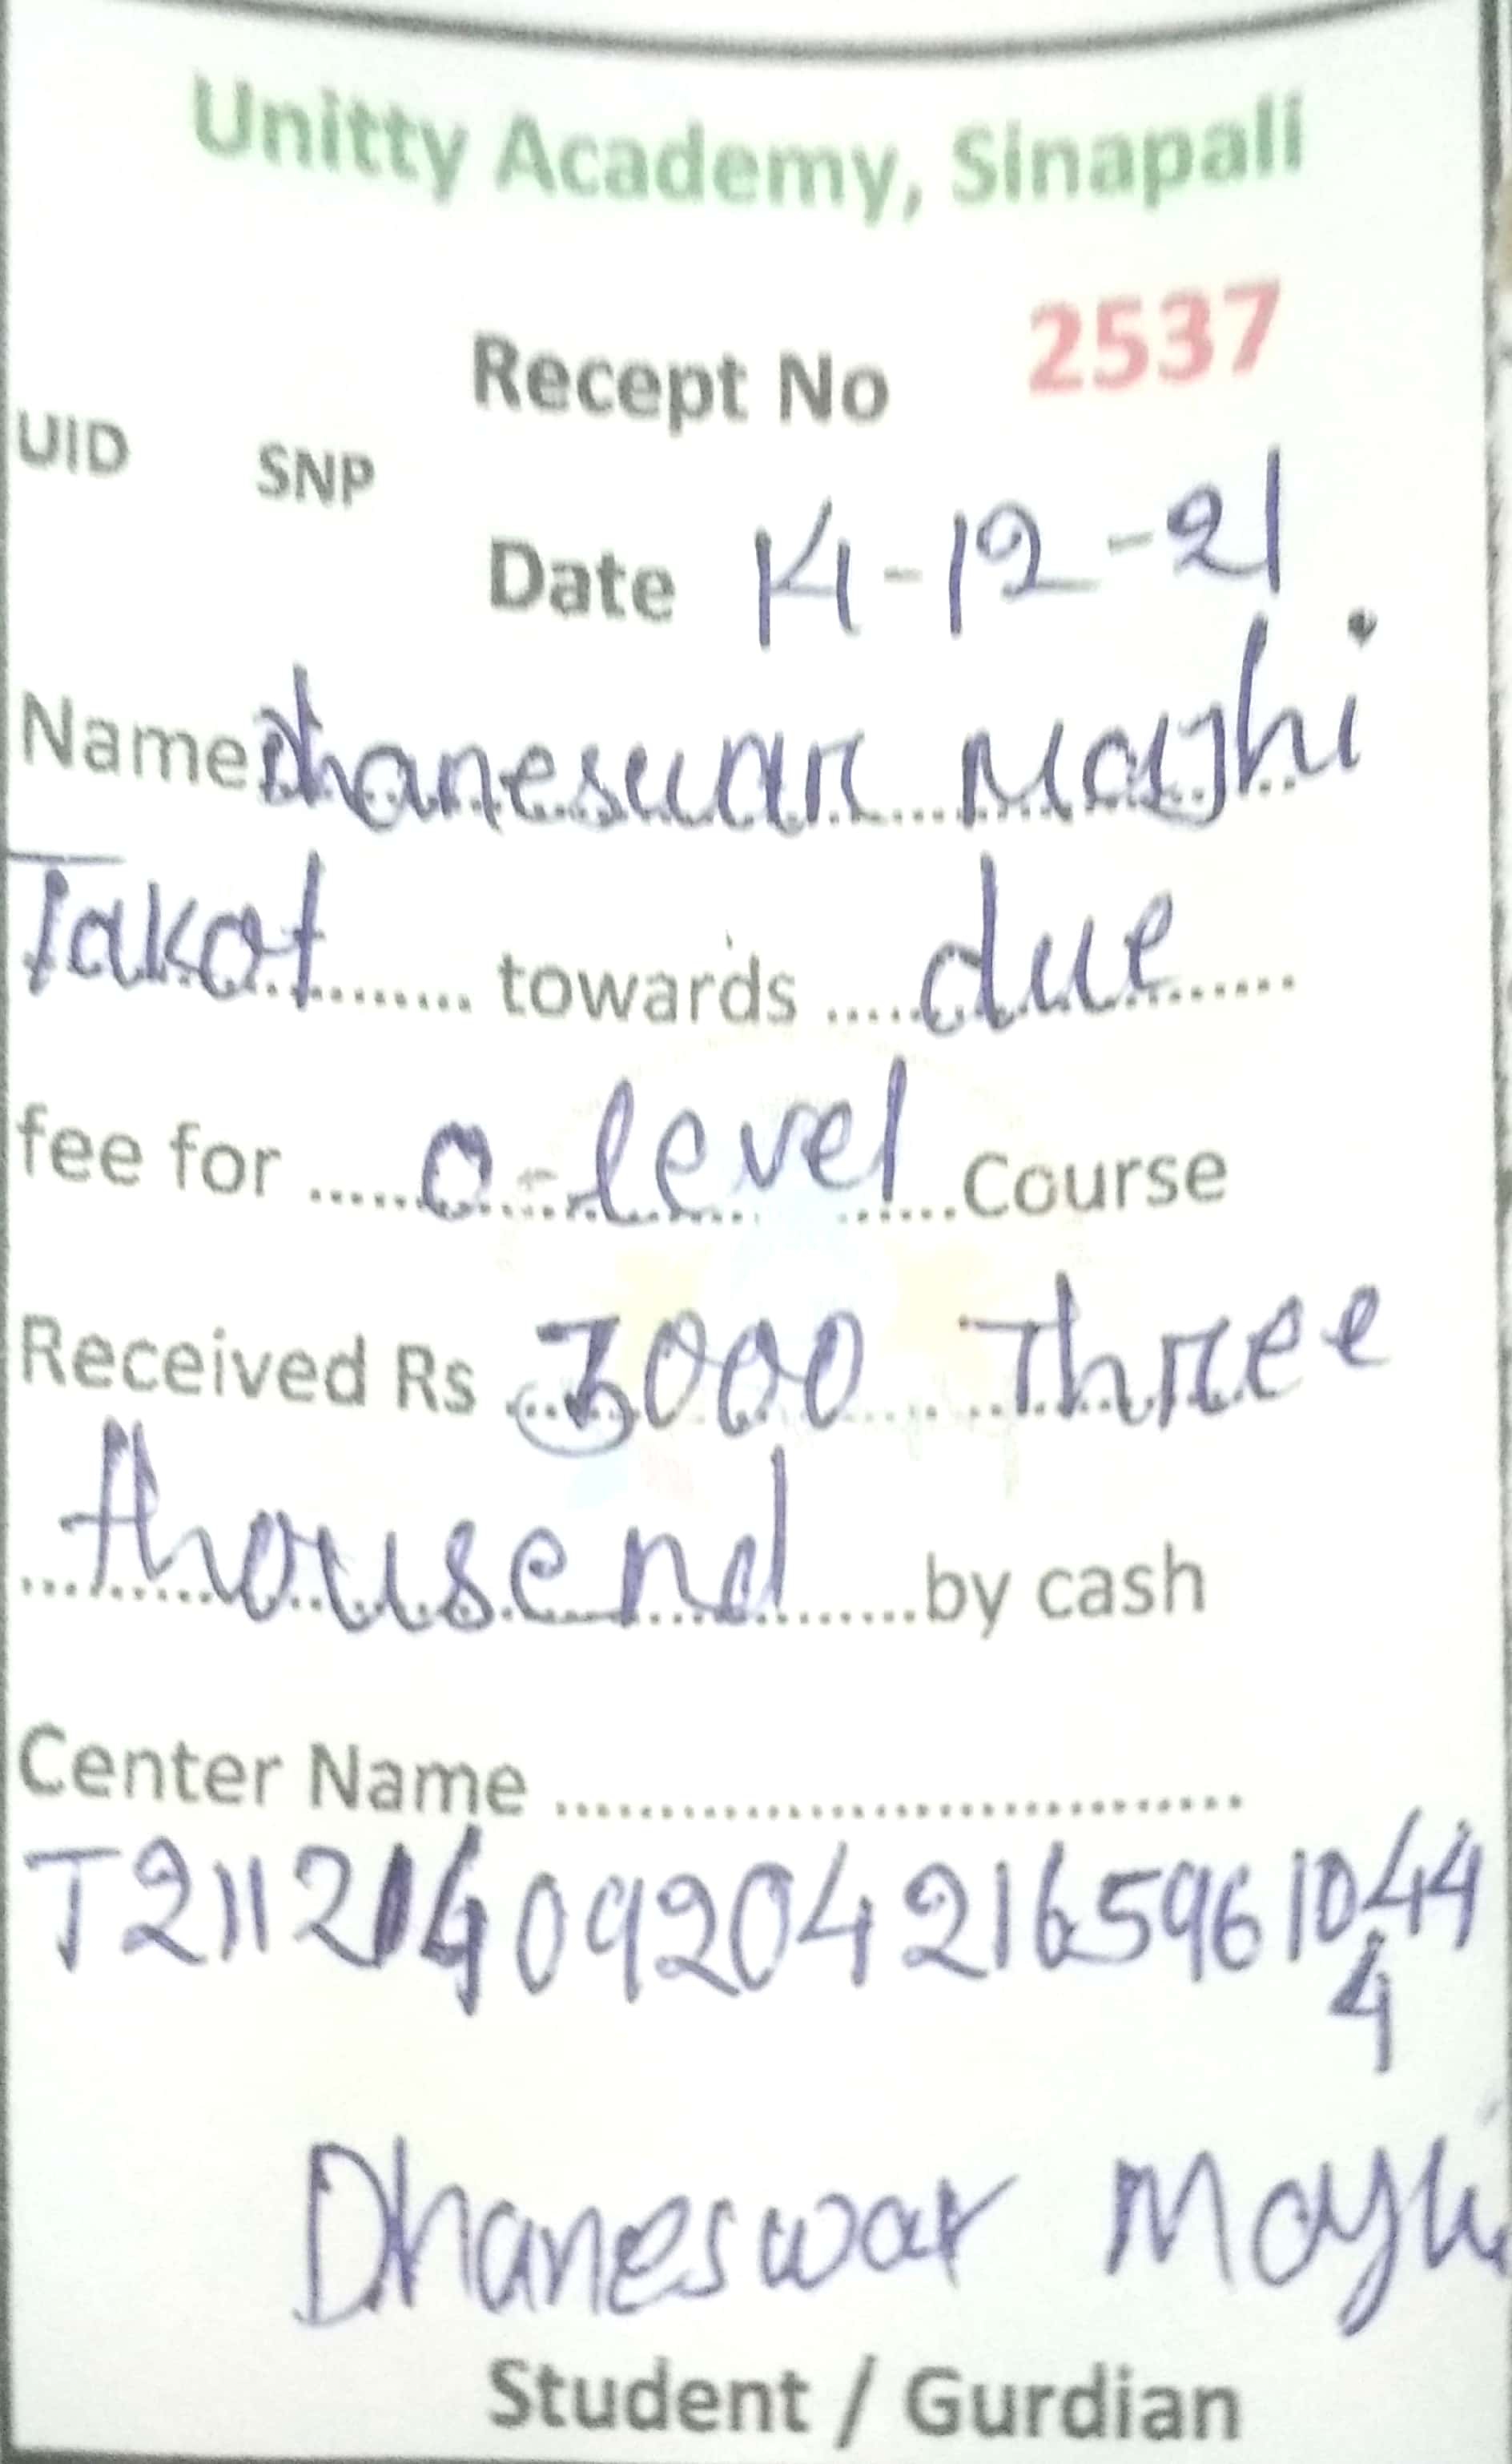 Unitty Academy, Sinapali
Recept No 2537
UID SNP
Date 14-12-21
Name Dhaneswar Majhi
Takot towards due
fee for o-level Course
Received Rs 3000 Three
thousend by cash
Center Name
T2112140920421659610444
4
Dhaneswar Majhi
Student / Gurdian